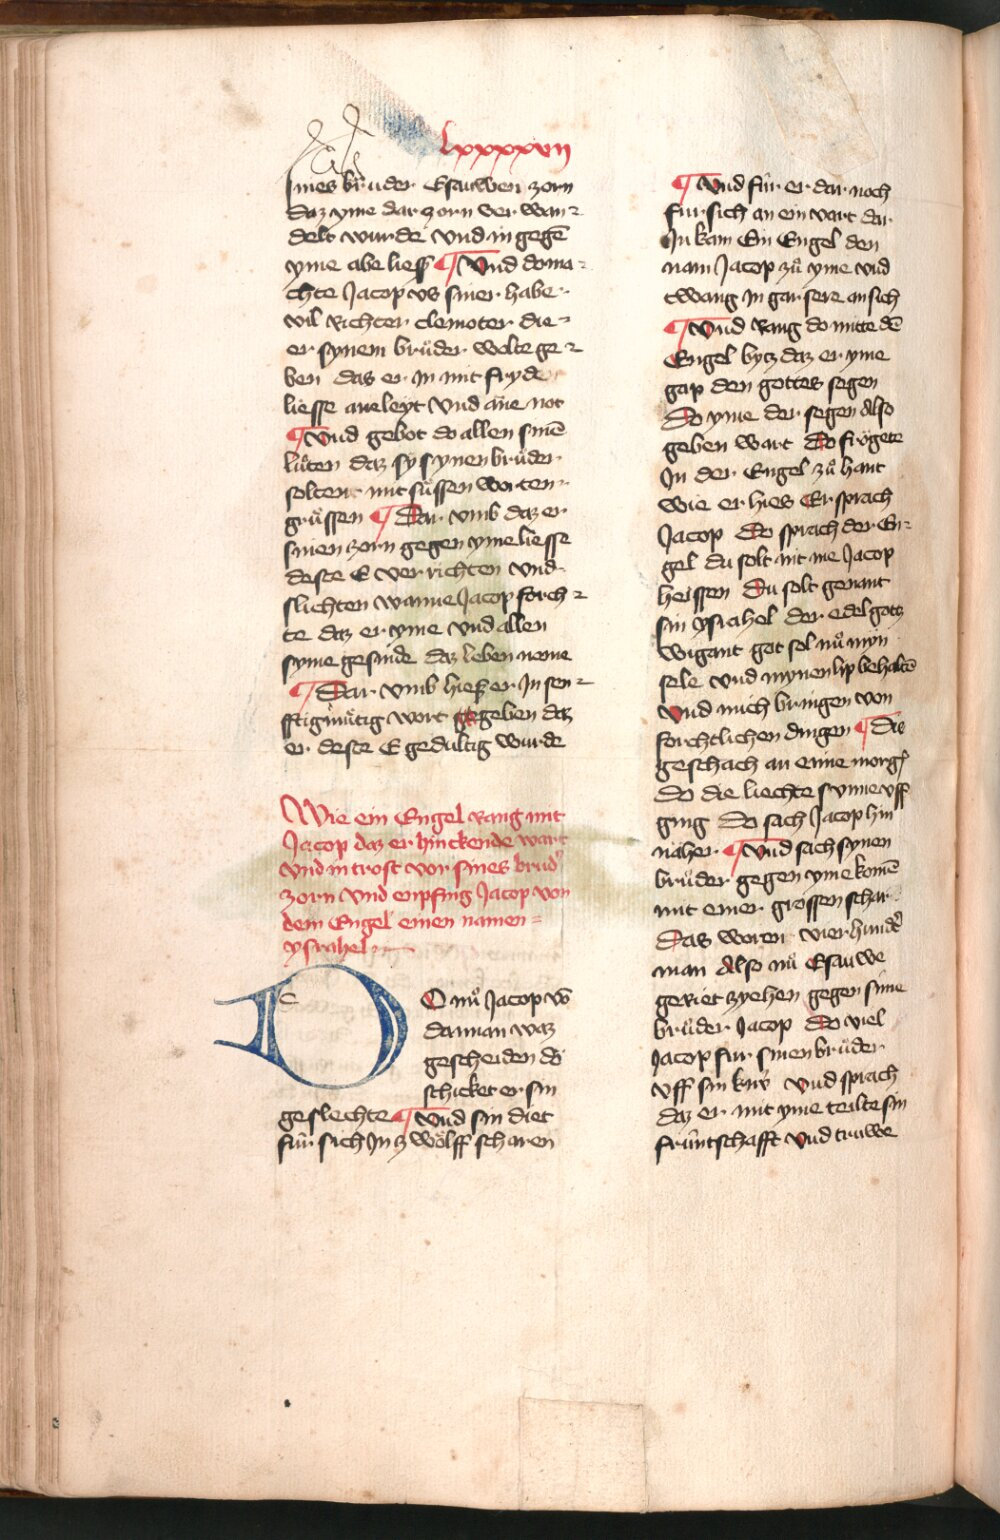 lxxxxvii
sines brůder Esauwen zorn
daz yme dar zorn ver wan⸗
delt wurde vnd in gegē
yme abe liesß ¶ Vnd doma⸗
chte Jacop vs siner habe
vil Richter cleinoter die
er synem brůder wolte ge⸗
ben das er In mit fryde
liesse aneleyt vnd ane not
¶ Vnd gebot do allen sinē
lůten daz sy synen brůder
solten mit sůssen worten
grůssen ¶ Dar vmb daz er
sinen zorn gegen yme liesse
deste E ver richten vnd
slichten wanne Jacop forch⸗
te daz er yme vnd allen
syme gesinde daz leben neme
¶ Dar vmb hiesß er In sen⸗
fftigmůtig wort gegeben daz
er deste E gedultig wurde
Wie ein Engel Rang mit
Jacop daz er hinckende wart
vnd in trost vor sines brud'
zorn vnd enpfing Jacop von
dem Engel einen namen⸗
ysrahel
DO nů Jacop vō
dannan waz
gescheiden do
schicket er sin
geslechte ¶ Vnd sin diet
fůr sich In zwôlff scharen
¶ Vnd fůr er dar noch
fur sich an ein vart dar
In kam Ein Engel den
nam Jacop zů yme vnd
twang In gar sere an sich
¶ Vnd Rang do mitte dē
Engel bytz daz er yme
gap den gottes segen
Do yme der segen Also
geben wart Do frôgete
In der Engel zů hant
wie er hies Er sprach
Jacop Do sprach der En⸗
gel du solt nit me Jacop
heissen Du solt genant
sin ysrahel der edel gotz
wigant got sol nů myn
sele vnd mynen lip behaltē
Vnd mich bringen von
forchtlichen dingen ¶ Dis
geschach an eime morgē
Do die liechte sunne vff
ging Do sach Jacop hin
naher ¶ Vnd sach synen
brůder gegen yme komē
mit einer grossen schar
Das woren vier hund'
man Also nů Esauwe
geriet zyehen gegen sime
brůder Jacop Do viel
Jacop fur sinen brůder
vff sin knv̇ vnd sprach
daz er mit yme teilte sin
frůntschafft vnd truwe